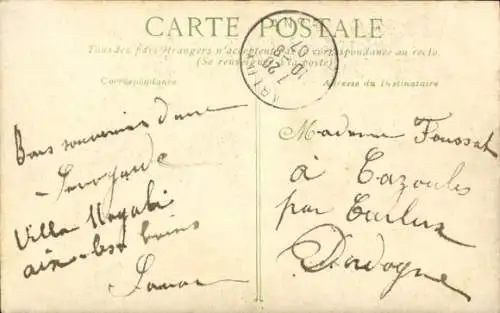 CARTE POSTALE
Tous les pays étrangers n'acceptent pas la correspondance au recto.
(Se renseigner à la poste)
Correspondance
Adresse du Destinataire
10
7 20
8
07
Bons souvenirs d'une
Savoyarde
Villa
aix-les-bains
Savoie
Madame Foussat
à Cazoulès
par Carlux
Dordogne